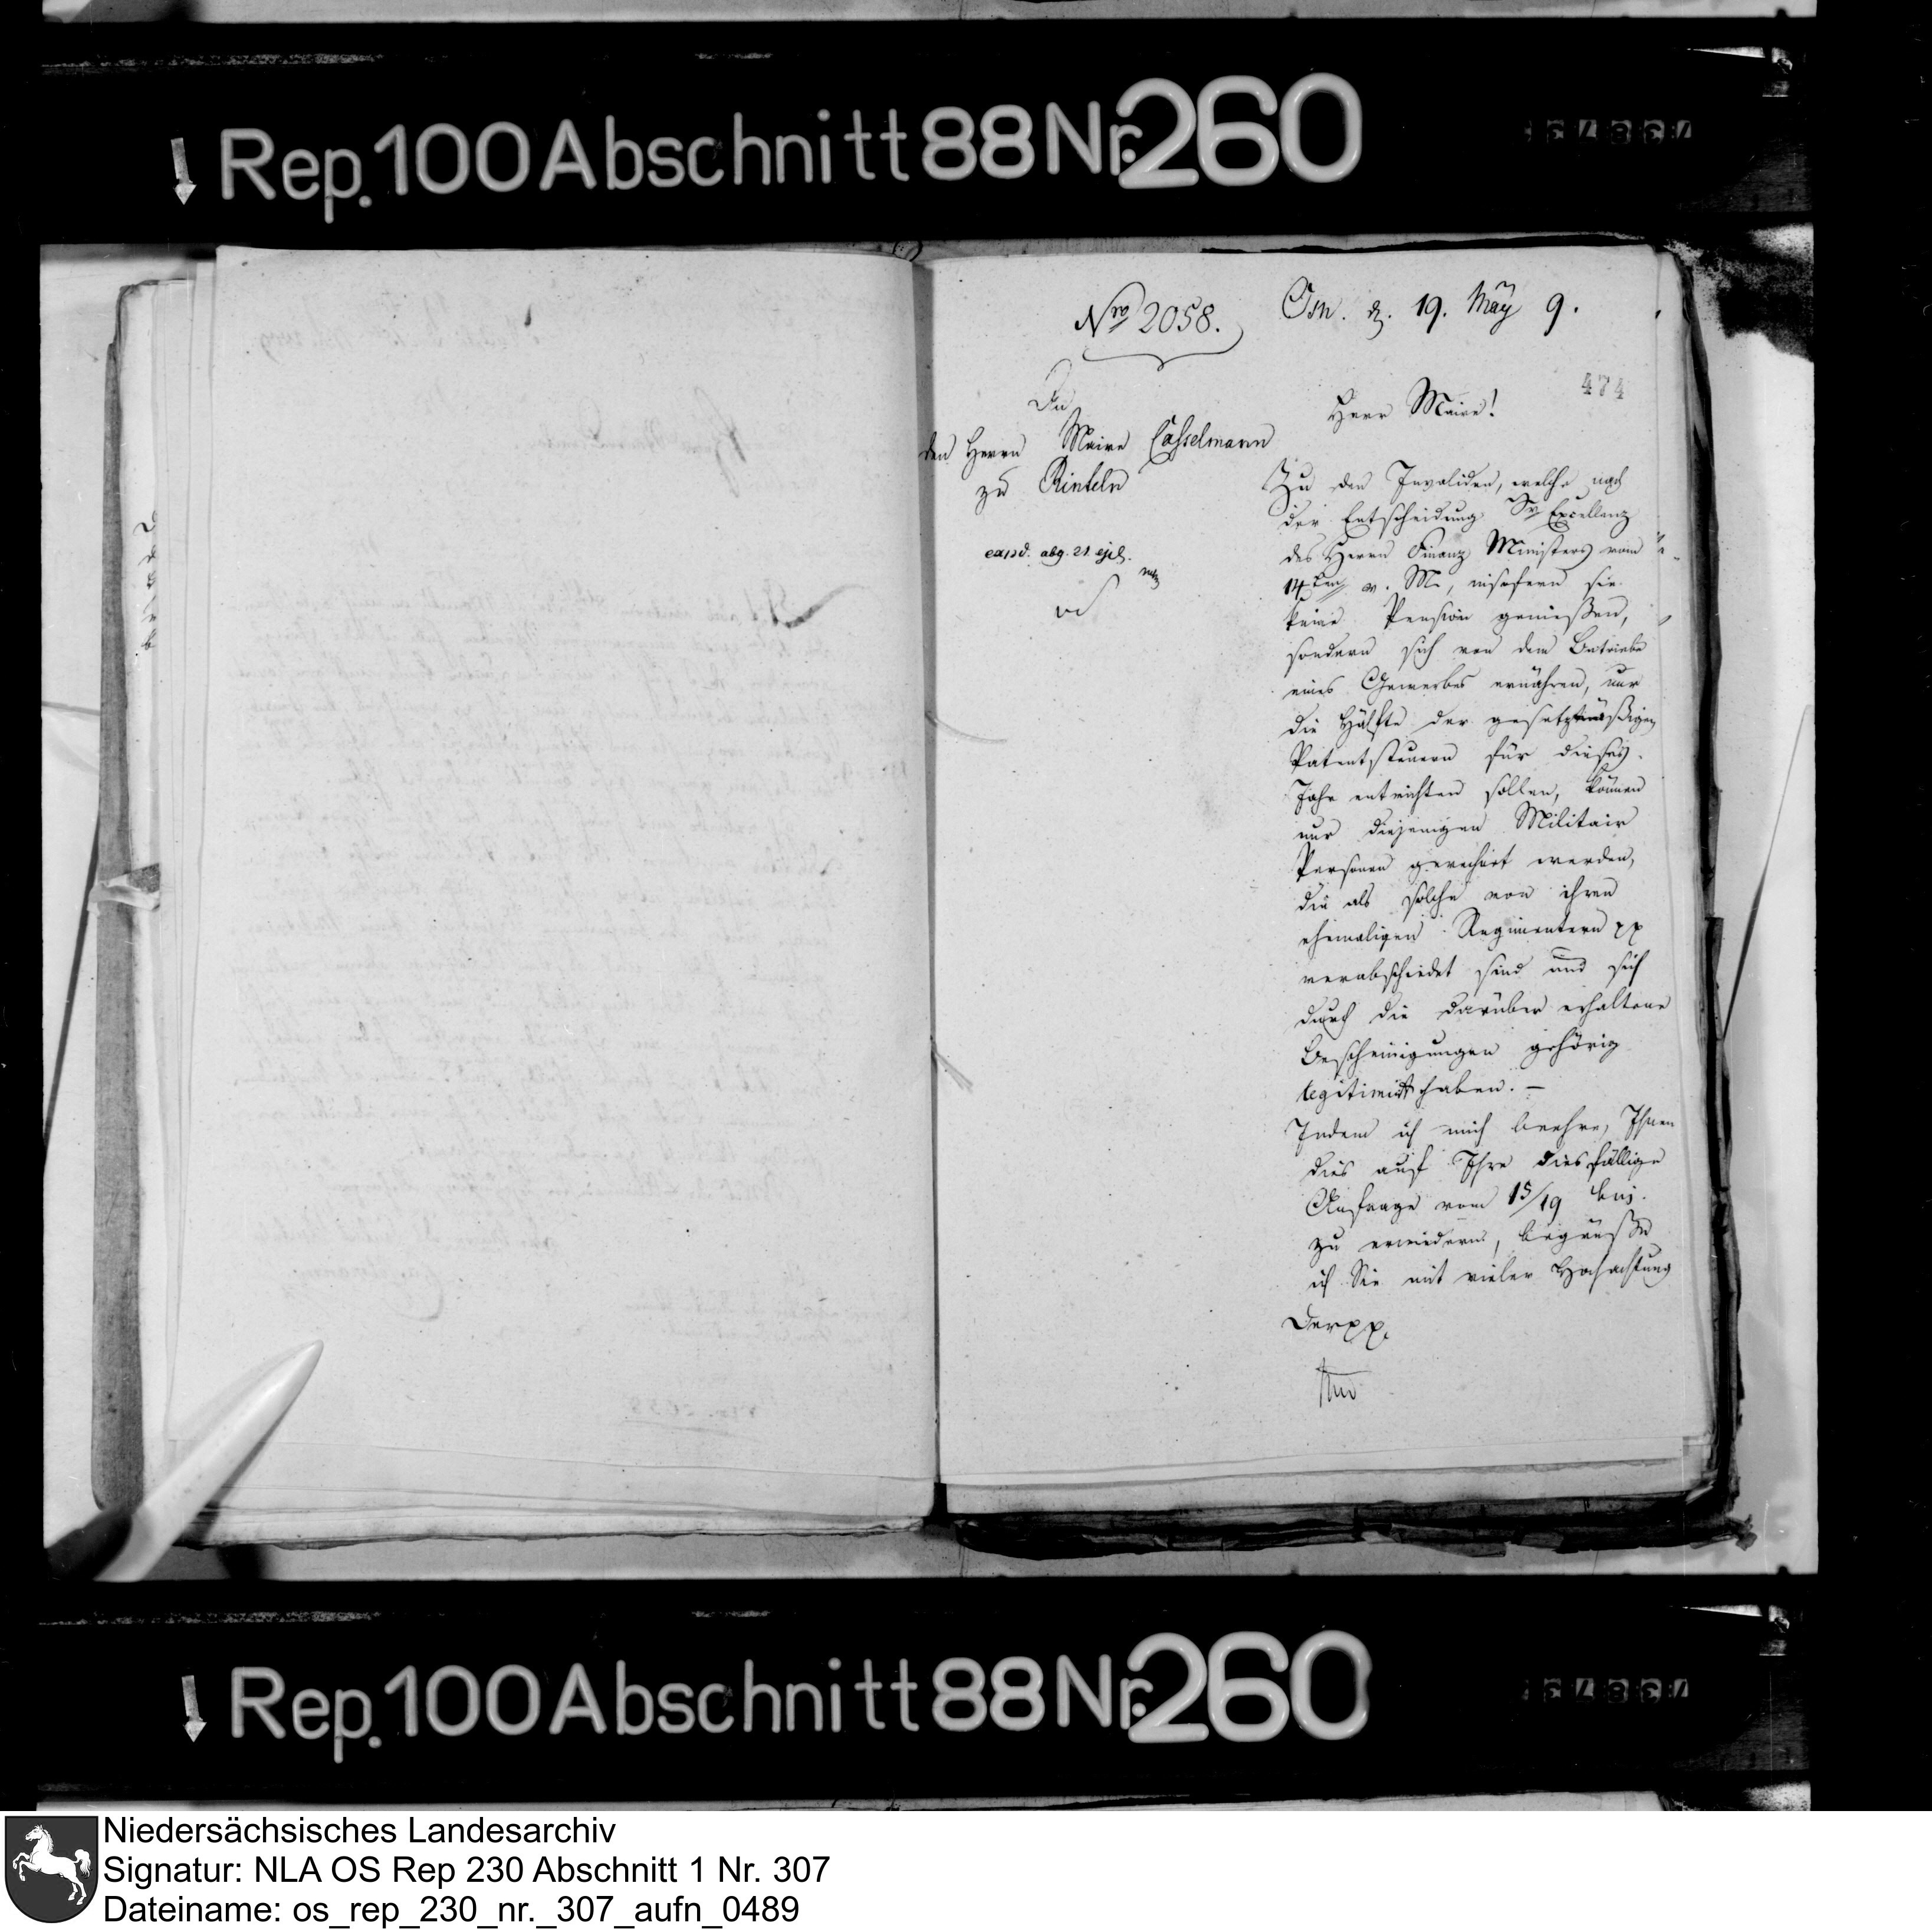 Rep. 100 Abschnitt 88 Nr. 260
Nro 2058.
Osn. d. 19. May 9.
474
An
den Herrn Maire Casselmann
zu Rinteln
exped. abg. 21. ejd.
Herr Maire!
Zu den Invaliden, welche nach
der Entscheidung Sr Excellenz
des Herrn Finanz Ministers vom
14ten v. M., insofern sie
keine Pension geniessen,
sondern sich von dem Betriebe
eines Gewerbes ernähren, nur
die Hälfte der gesetzmässigen
Patentsteuern für dieses
Jahr entrichten sollen, können
nur diejenigen Militair
Personen gerechnet werden,
die als solche von ihren
ehemaligen Regimentern pp
verabschiedet sind und sich
durch die darüber erhaltene
Bescheinigungen gehörig
legitimirt haben. —
Indem ich mich beehre, Ihnen
dies auf Ihre diesfällige
Anfrage vom 15/19 huj.
zu erwiedern, begrüsse
ich Sie mit vieler Hochachtung
Der pp.
Rep. 100 Abschnitt 88 Nr. 260
Niedersächsisches Landesarchiv
Signatur: NLA OS Rep 230 Abschnitt 1 Nr. 307
Dateiname: os_rep_230_nr._307_aufn_0489